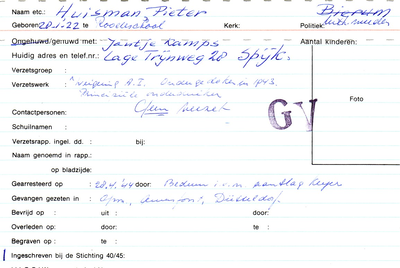 Naam etc.: Huisman, Pieter Bierum
Geboren: 20-4-22 te Roodeschool Kerk: Politiek:
Ongehuwd/gehuwd met: Jantje Kamps Aantal kinderen:
Huidig adres en telef.nr.: Lage Trijnweg 20 Spijk.
Verzetsgroep :
Verzetswerk : weigering A.I. Ondergedoken in 1943.
Principiële onderduiker
Geen verzet
Contactpersonen: GV Foto
Schuilnaam :
Verzetsrapp. ingel. dd. : bij:
Naam genoemd in rapp.:
op bladzijde:
Gearresteerd op : 28.4.'44 door: Bedum i.v.m. aanslag
Gevangen gezeten in : Gron, Düsseldorf
Bevrijd op : uit : door:
Overleden op: te : door:
Begraven op : te :
Ingeschreven bij de Stichting 40/45: